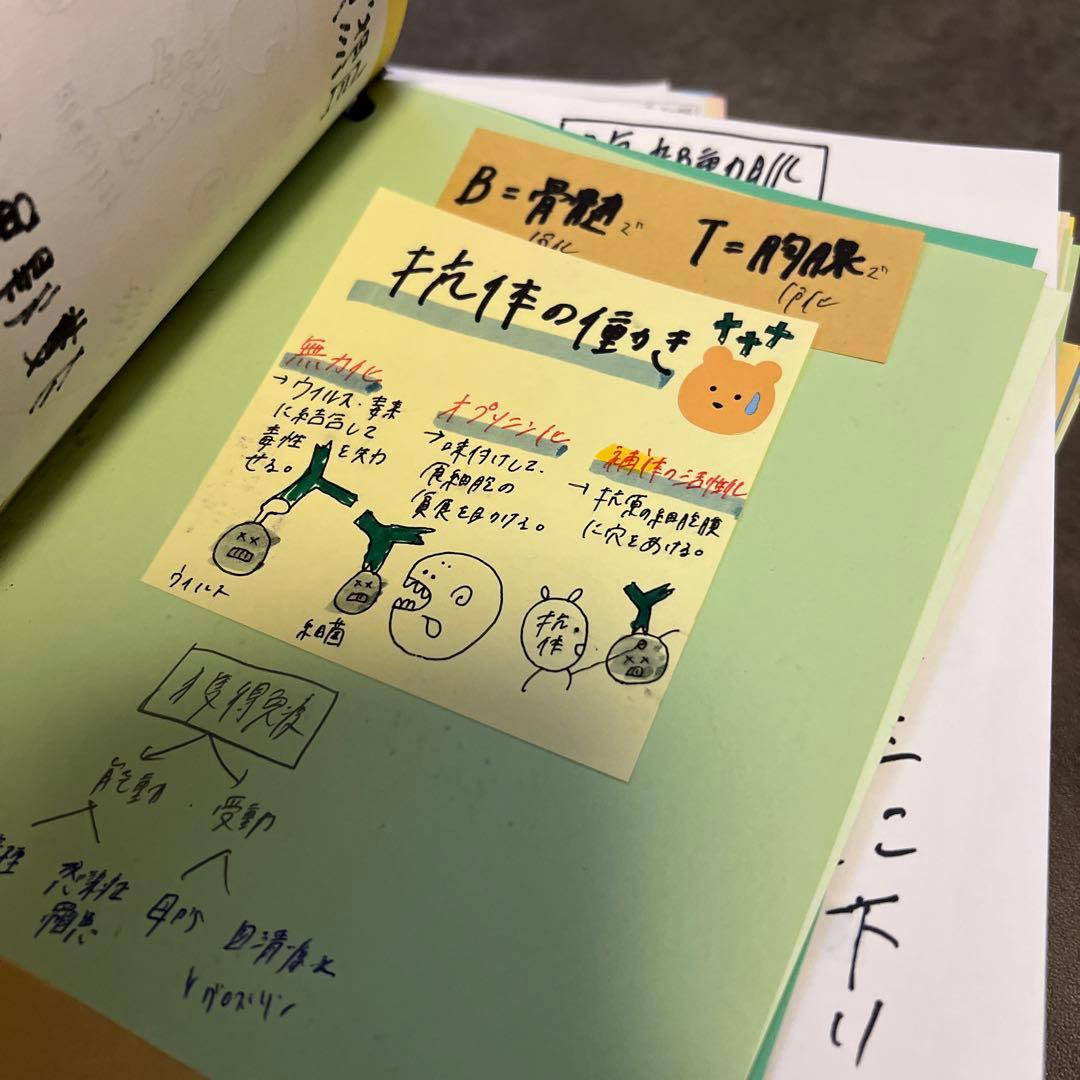 B=骨髄で
分化
T=胸腺で
分化
抗体の働き
無力化
→ウイルス・毒素
に結合して
毒性を失力
せる。
オプソニン化
→味付けして、
食細胞の
貪食を助ける。
補体の活性化
→抗原の細胞膜
に穴をあける。
ウイルス
細菌
抗体
獲得免疫
能動
受動
感染症
罹患
母乳
血清療法